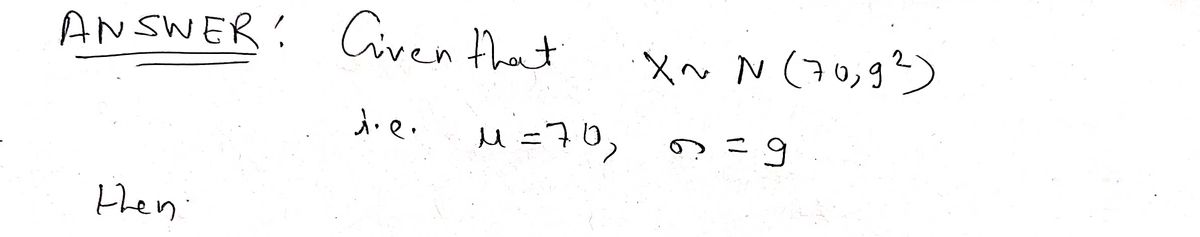 ANSWER: Given that X ~ N (70, 9²)
i.e. μ = 70, σ = 9
then